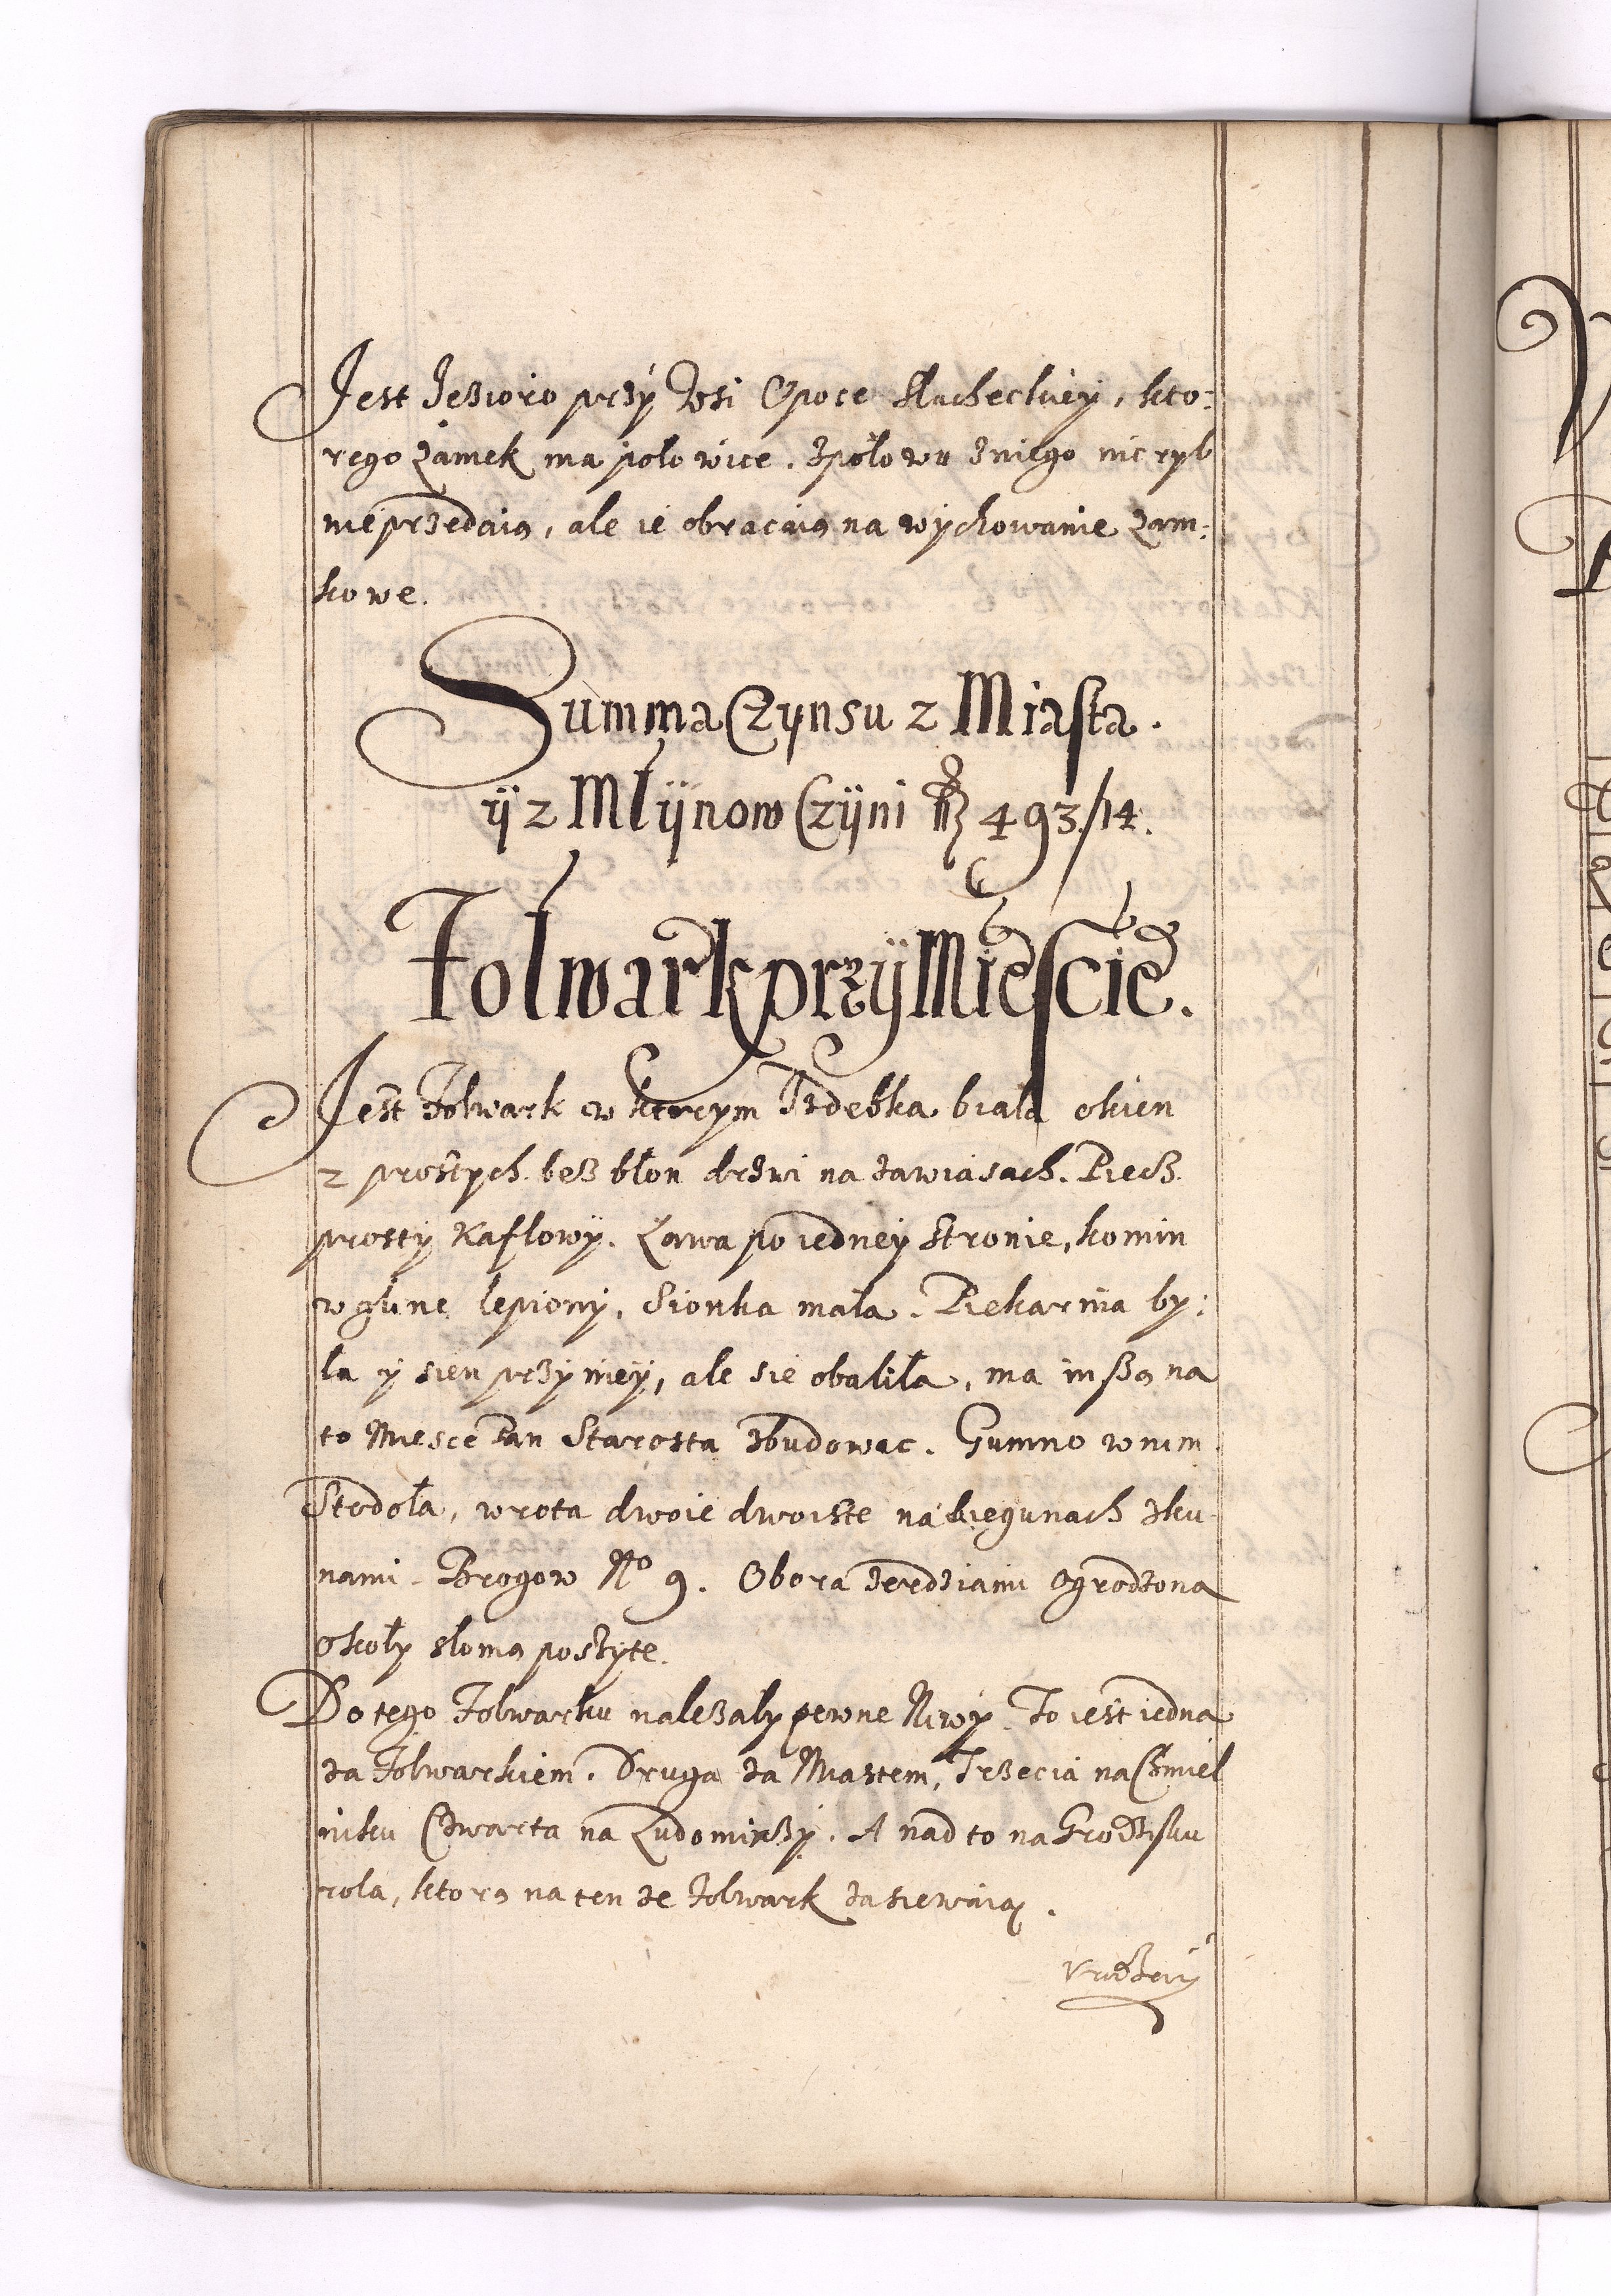 Jest Jezioro przy Wsi Opoce Slacheckiey, kto:
rego Zamek ma połowice. Zpołowu zniego nic ryb
nieprzedaią, ale ie obracaią na wychowanie Zam:
kowe.
Summa Czynsu z Miasta.
ÿ z Młÿnow Czÿni fl 493/14.
Folwark przÿ Miescie.
Jest Folwark w ktorym Izdebka biała okien
2 prostych bez błon drzwi na zawiasach. Piecz
prosty Kaflowy. Ława po iedney stronie, komin
w glinę lepiony, Sionka mała. Piekarnia by:
ła y sien przy niey, ale sie obaliła, ma inszą na
to Miesce Pan Starosta zbudowac. Gumno w nim
Stodoła, wrota dwoie dwoiste na biegunach zku
nami. Brogow No 9. Obora zerdziami ogrodzona
okoły słomą poszyte.
Do tego Folwarku nalezały pewne Niwy. To iest iedna
za Folwarkiem. Druga za Miastem, Trzecia na Chmiel
niku Czwarta na Ludomirzy. A nad to na Grodzisku
rola, ktorą na ten ze Folwark zasiewaią.
Vrodzay